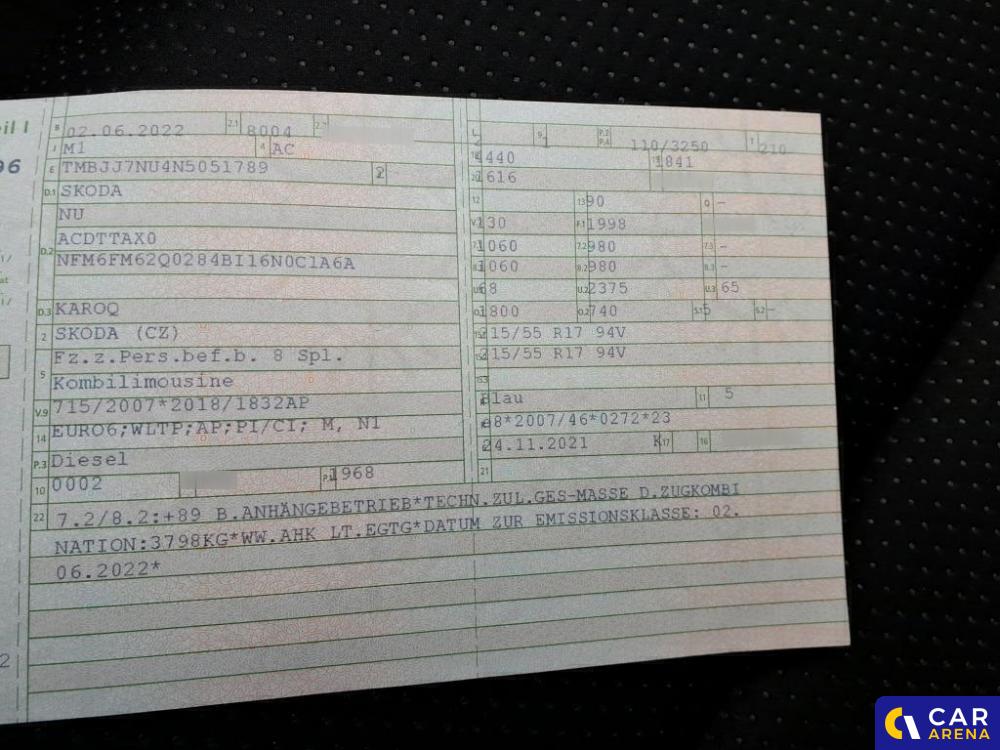 eil I
96
B 02.06.2022 2.1 8004 2.2
J M1 4 AC
E TMBJJ7NU4N5051789
D.1 SKODA
NU
D.2 ACDTTAX0
NFM6FM62Q0284BI16N0C1A6A
D.3 KAROQ
2 SKODA (CZ)
Fz.z.Pers.bef.b. 8 Spl.
5 Kombilimousine
V.9 715/2007*2018/1832AP
14 EURO6;WLTP;AP;PI/CI; M, N1
P.3 Diesel
10 0002 1968
22 7.2/8.2:+89 B.ANHÄNGEBETRIEB*TECHN.ZUL.GES-MASSE D.ZUGKOMBI
NATION:3798KG*WW.AHK LT.EGTG*DATUM ZUR EMISSIONSKLASSE: 02.
06.2022*
L 9 1 P.2 P.4 110/3250 T 210
4440 1841
1616
12 13 90 Q –
130 F.1 1998
1060 7.2 980 7.3 –
1060 8.2 980 8.3 –
68 U.2 2375 U.3 65
1800 O.2 740 S.1 5 S.2 –
215/55 R17 94V
215/55 R17 94V
Blau 11 5
e8*2007/46*0272*23
24.11.2021 K 17 16
21
2
CAR
ARENA